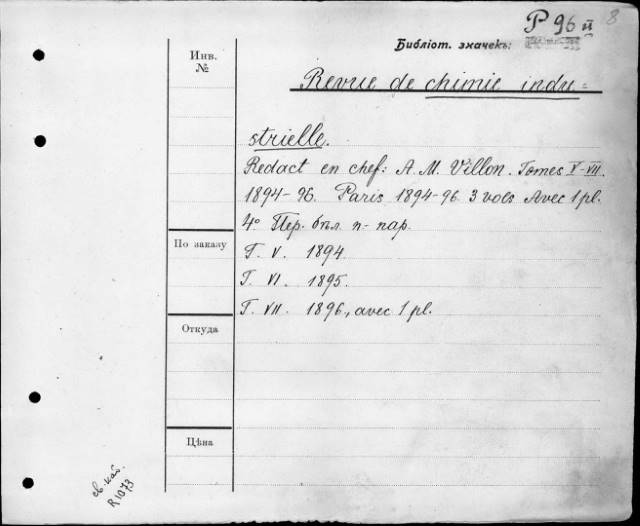 P 96 II
8
Библіот. значекъ:
Инв.
№
Revue de chimie indu=
strielle.
Redact en chef: A. M. Villon. Tomes V-VII.
1894-96. Paris 1894-96. 3 vols Avec 1 pl.
4° Пер. бѣл. п.-пар.
По заказу
T. V. 1894.
T. VI. 1895.
T. VII. 1896., avec 1 pl.
Откуда
Цѣна
св. каб.
R 1073